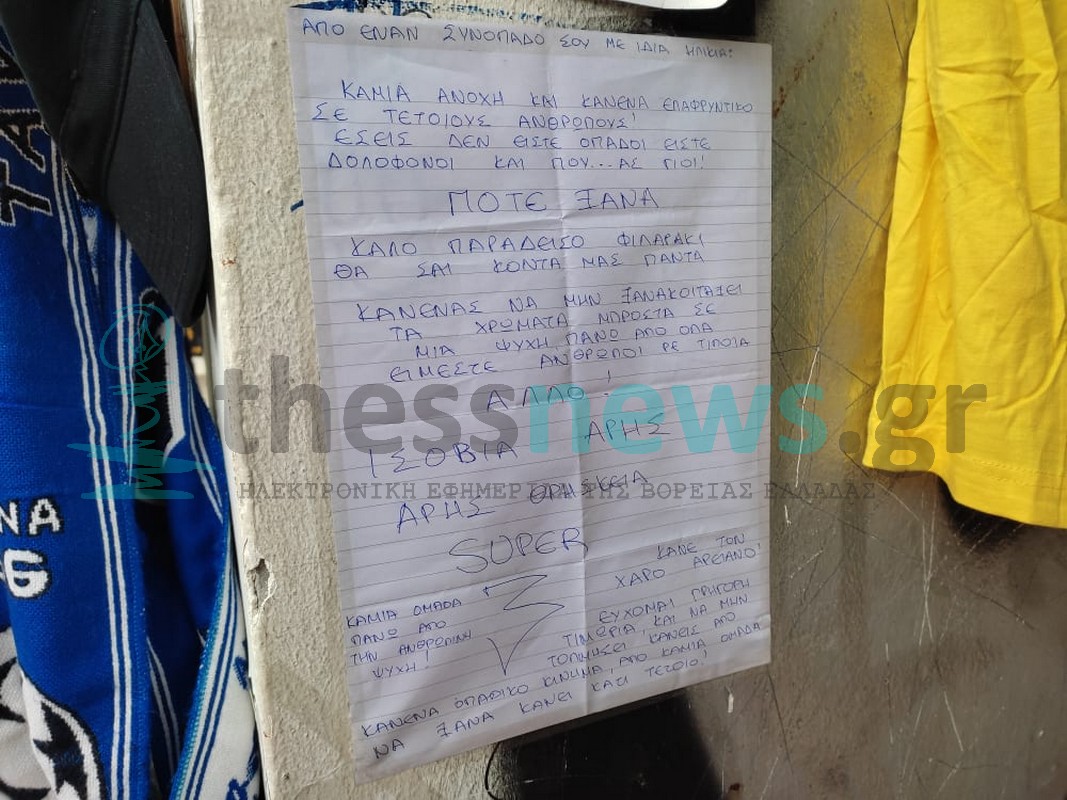 ΑΠΟ ΕΝΑΝ ΣΥΝΟΠΑΔΟ ΣΟΥ ΜΕ ΙΔΙΑ ΗΛΙΚΙΑ:
ΚΑΜΙΑ ΑΝΟΧΗ ΚΑΙ ΚΑΝΕΝΑ ΕΛΑΦΡΥΝΤΙΚΟ
ΣΕ ΤΕΤΟΙΟΥΣ ΑΝΘΡΩΠΟΥΣ!
ΕΣΕΙΣ ΔΕΝ ΕΙΣΤΕ ΟΠΑΔΟΙ ΕΙΣΤΕ
ΔΟΛΟΦΟΝΟΙ ΚΑΙ ΠΟΥ...ΑΣ ΓΙΟΙ!
ΠΟΤΕ ΞΑΝΑ
ΚΑΛΟ ΠΑΡΑΔΕΙΣΟ ΦΙΛΑΡΑΚΙ
ΘΑ ΣΑΙ ΚΟΝΤΑ ΜΑΣ ΠΑΝΤΑ
ΚΑΝΕΝΑΣ ΝΑ ΜΗΝ ΞΑΝΑΚΟΙΤΑΞΕΙ
ΤΑ ΧΡΩΜΑΤΑ ΜΠΡΟΣΤΑ ΣΕ
ΜΙΑ ΨΥΧΗ, ΠΑΝΩ ΑΠΟ ΟΛΑ
ΕΙΜΕΣΤΕ ΑΝΘΡΩΠΟΙ ΡΕ ΤΙΠΟΤΑ
ΑΛΛΟ!
ΙΣΟΒΙΑ ΑΡΗΣ
ΑΡΗΣ ΘΡΗΣΚΕΙΑ
SUPER
3
ΚΑΝΕ ΤΟΝ
ΧΑΡΟ ΑΡΕΙΑΝΟ!
ΚΑΜΙΑ ΟΜΑΔΑ
ΠΑΝΩ ΑΠΟ
ΤΗΝ ΑΝΘΡΩΠΙΝΗ
ΨΥΧΗ!
ΕΥΧΟΜΑΙ ΓΡΗΓΟΡΗ
ΤΙΜΩΡΙΑ, ΚΑΙ ΝΑ ΜΗΝ
ΤΟΛΜΗΣΕΙ ΚΑΝΕΙΣ ΑΠΟ
ΚΑΝΕΝΑ ΟΠΑΔΙΚΟ ΚΙΝΗΜΑ, ΑΠΟ ΚΑΜΙΑ ΟΜΑΔΑ
ΝΑ ΞΑΝΑ ΚΑΝΕΙ ΚΑΤΙ ΤΕΤΟΙΟ!
thessnews.gr
ΗΛΕΚΤΡΟΝΙΚΗ ΕΦΗΜΕΡΙΔΑ ΤΗΣ ΒΟΡΕΙΑΣ ΕΛΛΑΔΑΣ